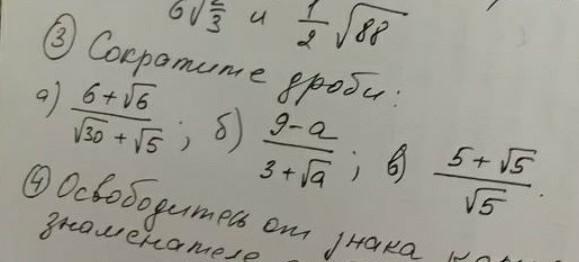 6√2/3 и 1/2 √88
③ Сократите дроби:
а) (6+√6)/(√30+√5); б) (9-a)/(3+√a); в) (5+√5)/√5.
④ Освободитесь от знака
знаменателе